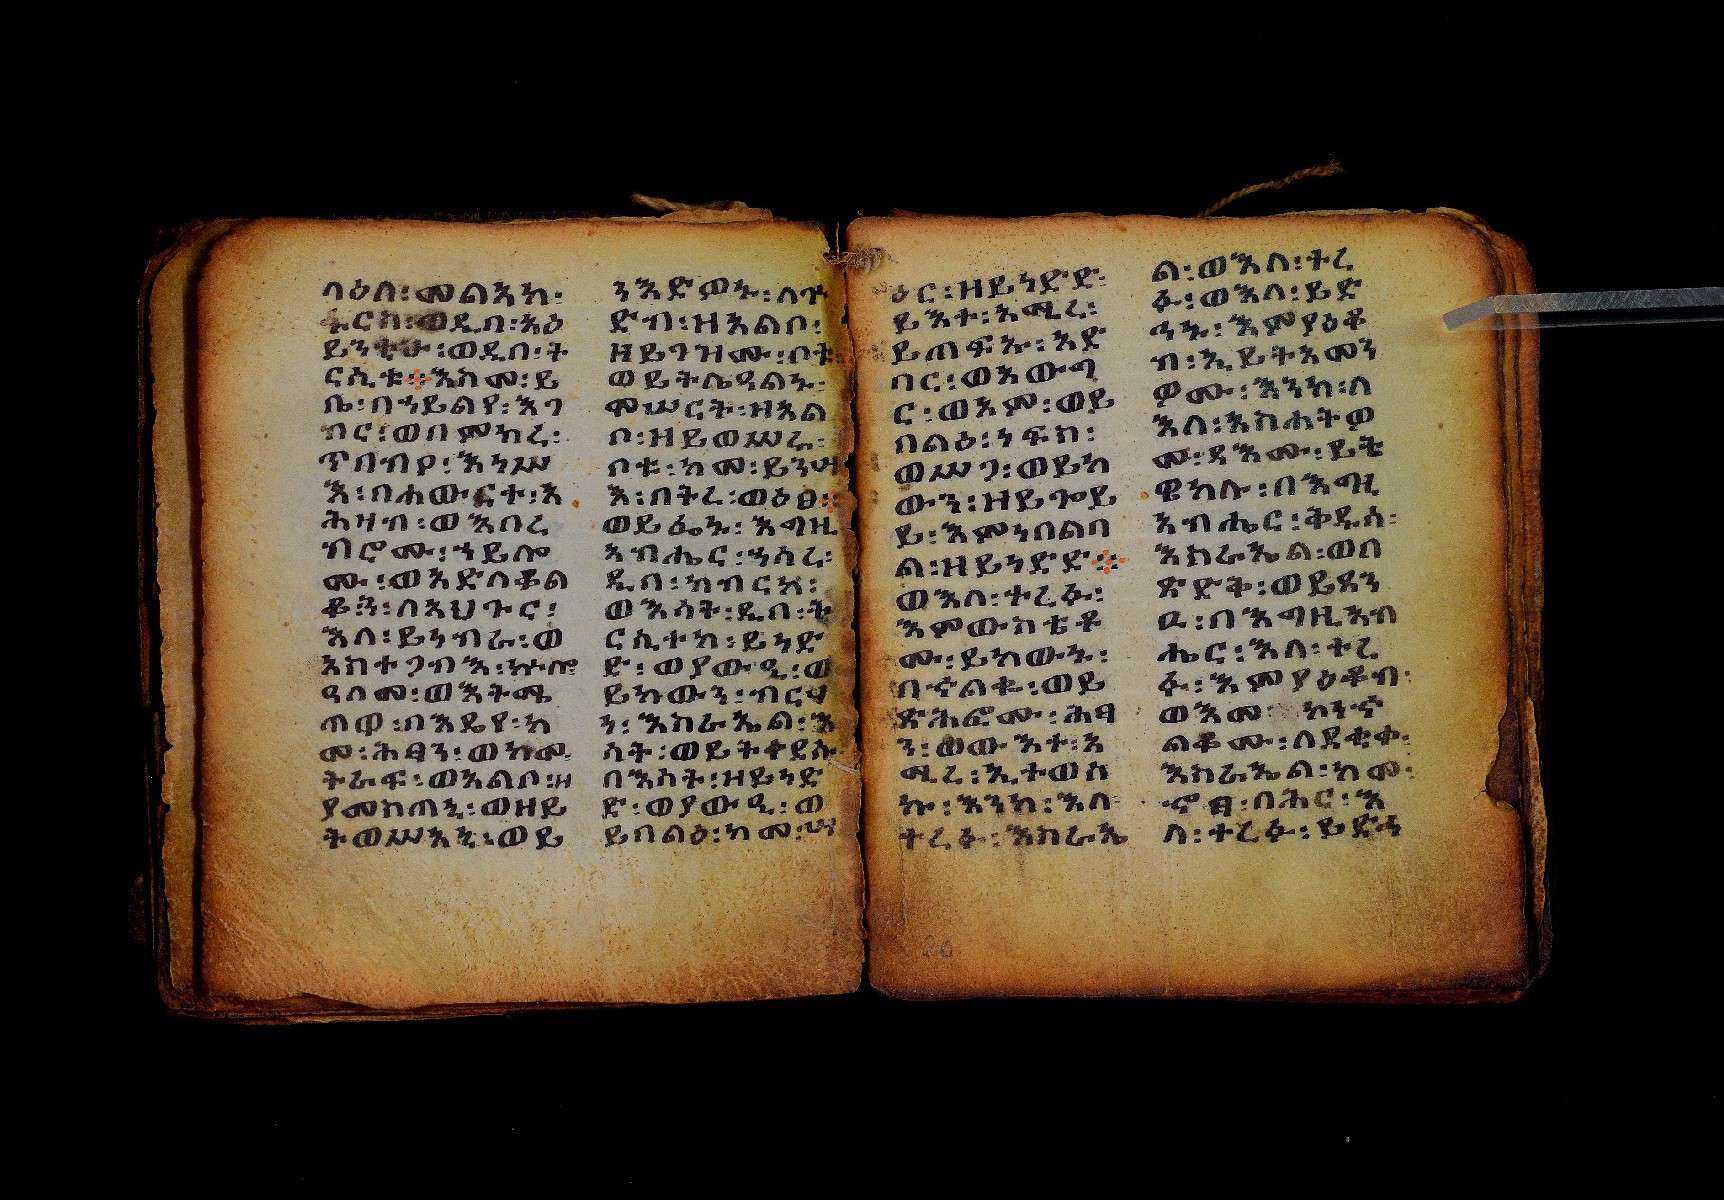 ላዕለ፡መልአከ፡
ፋርስ፡ወዲበ፡አዕ
ይንቲሁ፡ወዲበ፡ት
ርሲቱ፨እስመ፡ይ
ቤ፡በኀይልየ፡እገ
ብር፡ወበምክረ፡
ጥበብየ፡እነሥ
እ፡በሐውርተ፡አ
ሕዛብ፡ወእበረ
ብሮሙ፡ኀይሎ
ሙ፡ወእድለቀልቅ
ቆን፡ለአህጉር፡
እለ፡ይነብራ፡ወ
እከተ፡ጋብእ፡ኵሎ
ዓለመ፡ወእትሜ
ጠዎ፡በእዴየ፡ከ
መ፡ሕፃን፡ወከመ
ትራፍ፡ወአልቦ፡ዘ
ያመከጠኒ፡ወዘይ
ትወሥአኒ፡ወይ
ንእድዎኑ፡ለጕ
ድብ፡ዘእልቦ፡
ዘይገዝሙ፡ቦቱ
ወይትሌዓልኑ፡
ሞሠርት፡ዘአል
ቦ፡ዘይወሥሪ፡
ቦቱ፡ከመ፡ይንሣ
እ፡በትረ፡ወዕፀ፡
ወይፌኑ፡እግዚ
አብሔር፡ኀሳረ፡
ዲበ፡ክብርከ፡
ወእሳት፡ዲበ፡ት
ርሲተከ፡ይነድ
ድ፡ወያውዒ፡ወ
ይከውን፡ብርሃ
ን፡እስራኤል፡እ
ሳት፡ወይትቀደስ
በእሳት፡ዘይነድ
ድ፡ወያውዒ፡ወ
ይበልዕ፡ከመ፡ሣ
ዕር፡ዘይነድድ፡
ይእተ፡አሚረ፡
ይጠፍኡ፡አድ
ባር፡ወአውግ
ር፡ወአም፡ወይ
በልዕ፡ነፍስ፡
ወሥጋ፡ወይከ
ውን፡ዘይጐይ
ይ፡እምነበልባ
ል፡ዘይነድድ፨
ወእለ፡ተረፉ፡
እምውስቴቶ
ሙ፡ይከውኑ፡
በኍልቁ፡ወይ
ጽሕፎሙ፡ሕፃ
ን፡ወውእተ፡አ
ሚረ፡ኢተወሰ
ኩ፡እንከ፡እለ
ተረፉ፡እስራኤ
ል፡ወእለ፡ተረ
ፉ፡ወእለ፡ይድ
ኅኑ፡እምያዕቆ
ብ፡ኢይትአመን
ዎሙ፡እንከ፡ለ
እለ፡አስሐትዎ
ሙ፡ዳእሙ፡ይት
ዌከሉ፡በእግዚ
አብሔር፡ቅዱሰ፡
እስራኤል፡በበ
ጽድቅ፡ወይደን
ዱ፡በእግዚአብ
ሔር፡እለ፡ተረ
ፉ፡እምያዕቆብ፡
ወእመ፡ኮነ፡ኍ
ልቆሙ፡ለደቂቀ፡
እስራኤል፡ከመ፡
ኆፃ፡ባሕር፡እ
ለ፡ተረፉ፡ይድኅ